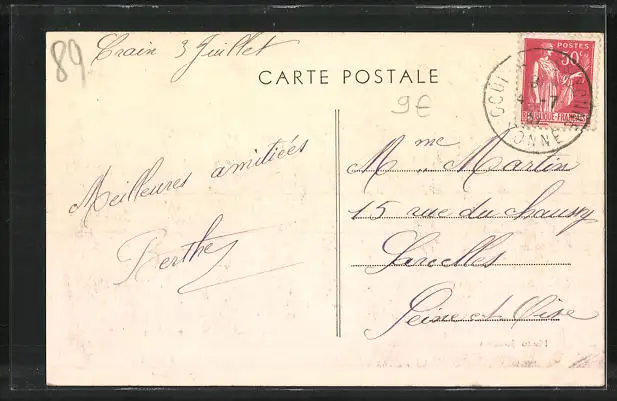 89
Crain 3 Juillet
CARTE POSTALE
POSTES
50c
9€
4 -7
YONNE
Meilleures amitiées
Berthe
Mme Martin
15 rue du chaussy
Sarcelles
Seine et Oise